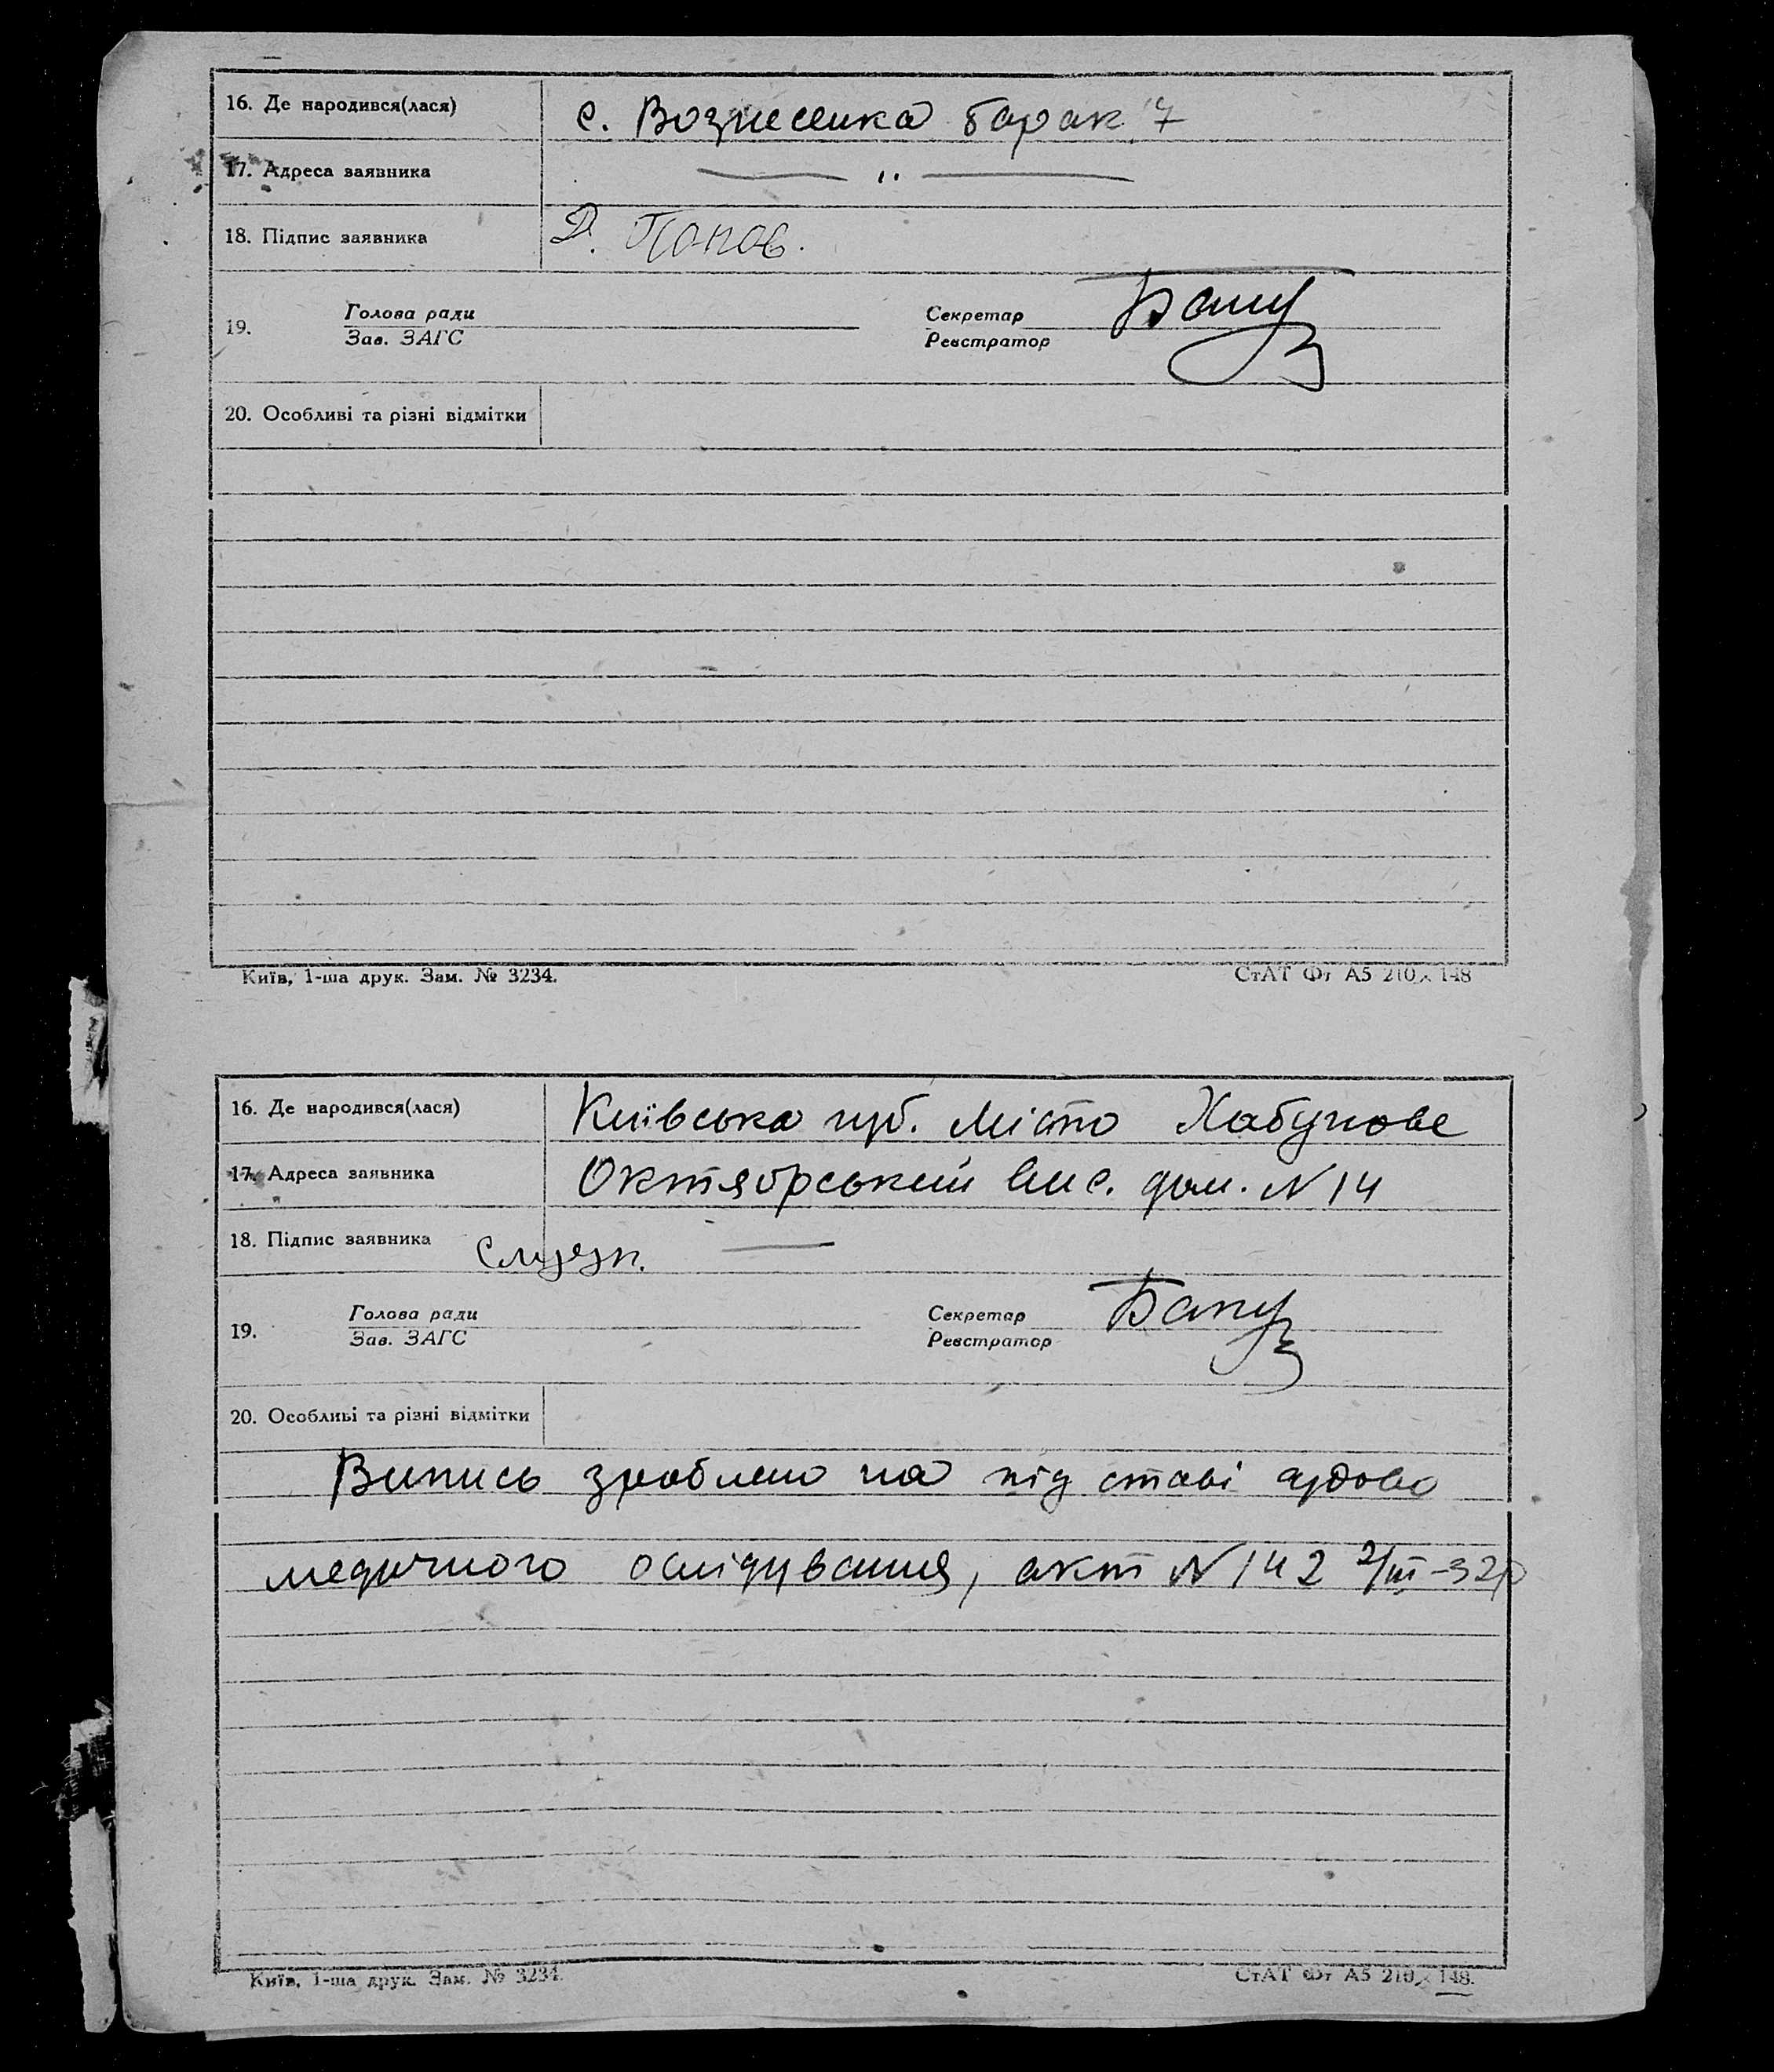 16. Де народився(лася) с. Вознесенка барак 7
17. Адреса заявника — " —
18. Підпис заявника Д. Попов.
19. Голова ради Секретар
Зав. ЗАГС Реєстратор
20. Особливі та різні відмітки
Київ, 1-ша друк. Зам. № 3234. СтАТ Фт А5 210 × 148
16. Де народився(лася) Київська губ. місто Хабунове
17. Адреса заявника Октябрський вис. дом. N 14
18. Підпис заявника —
19. Голова ради Секретар
Зав. ЗАГС Реєстратор
20. Особливі та різні відмітки
Випись зроблено на під ставі судово
медичного ослідування, акт N 142 2/III-32р
Київ, 1-ша друк. Зам. № 3234. СтАТ Фт А5 210 × 148.